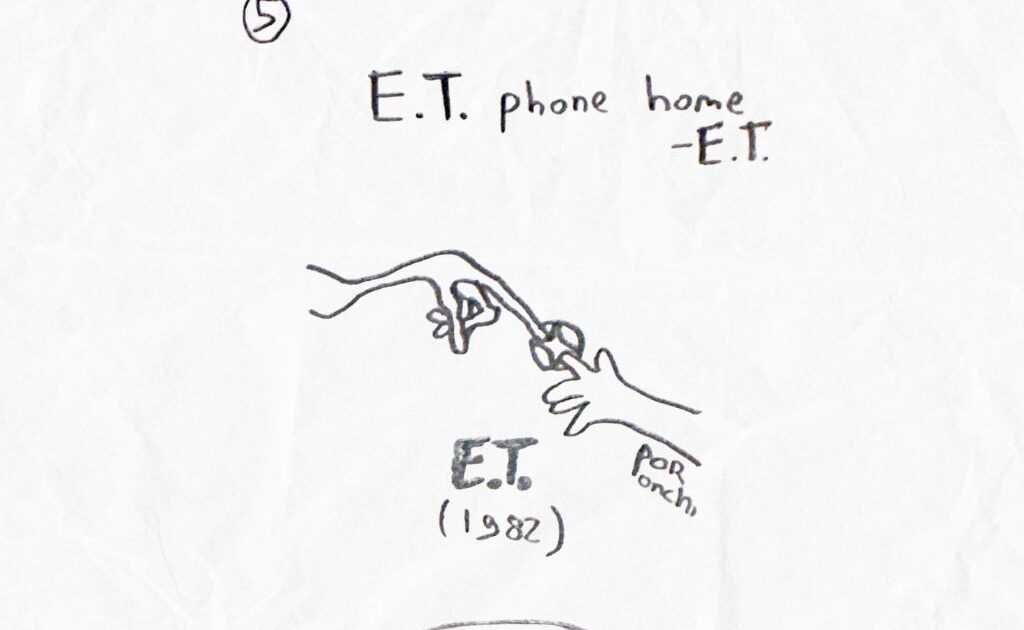 5
E.T. phone home
-E.T.
E.T.
(1982)
POR
onch,